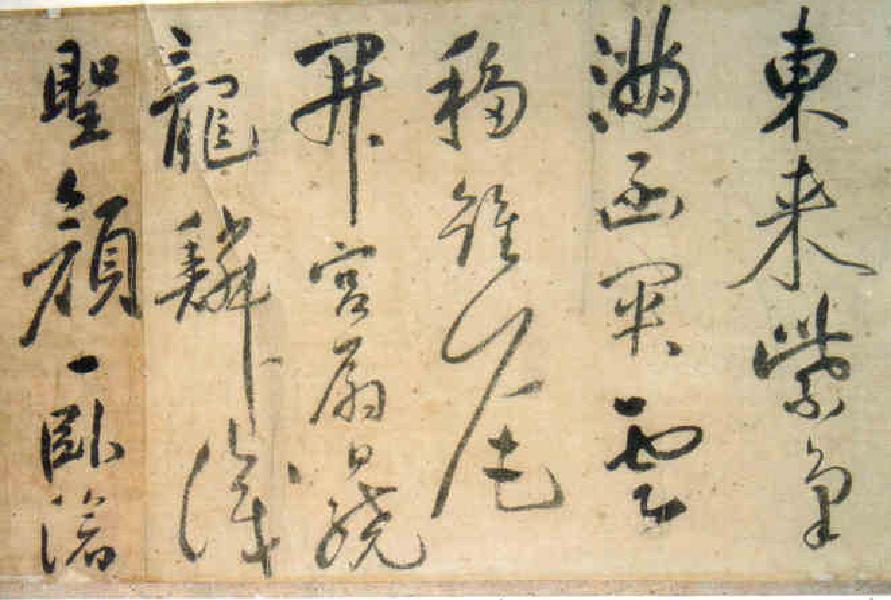 東来紫氣
滿函關雲
移雉尾
開宮扇日繞
龍鱗識
聖顔一臥滄